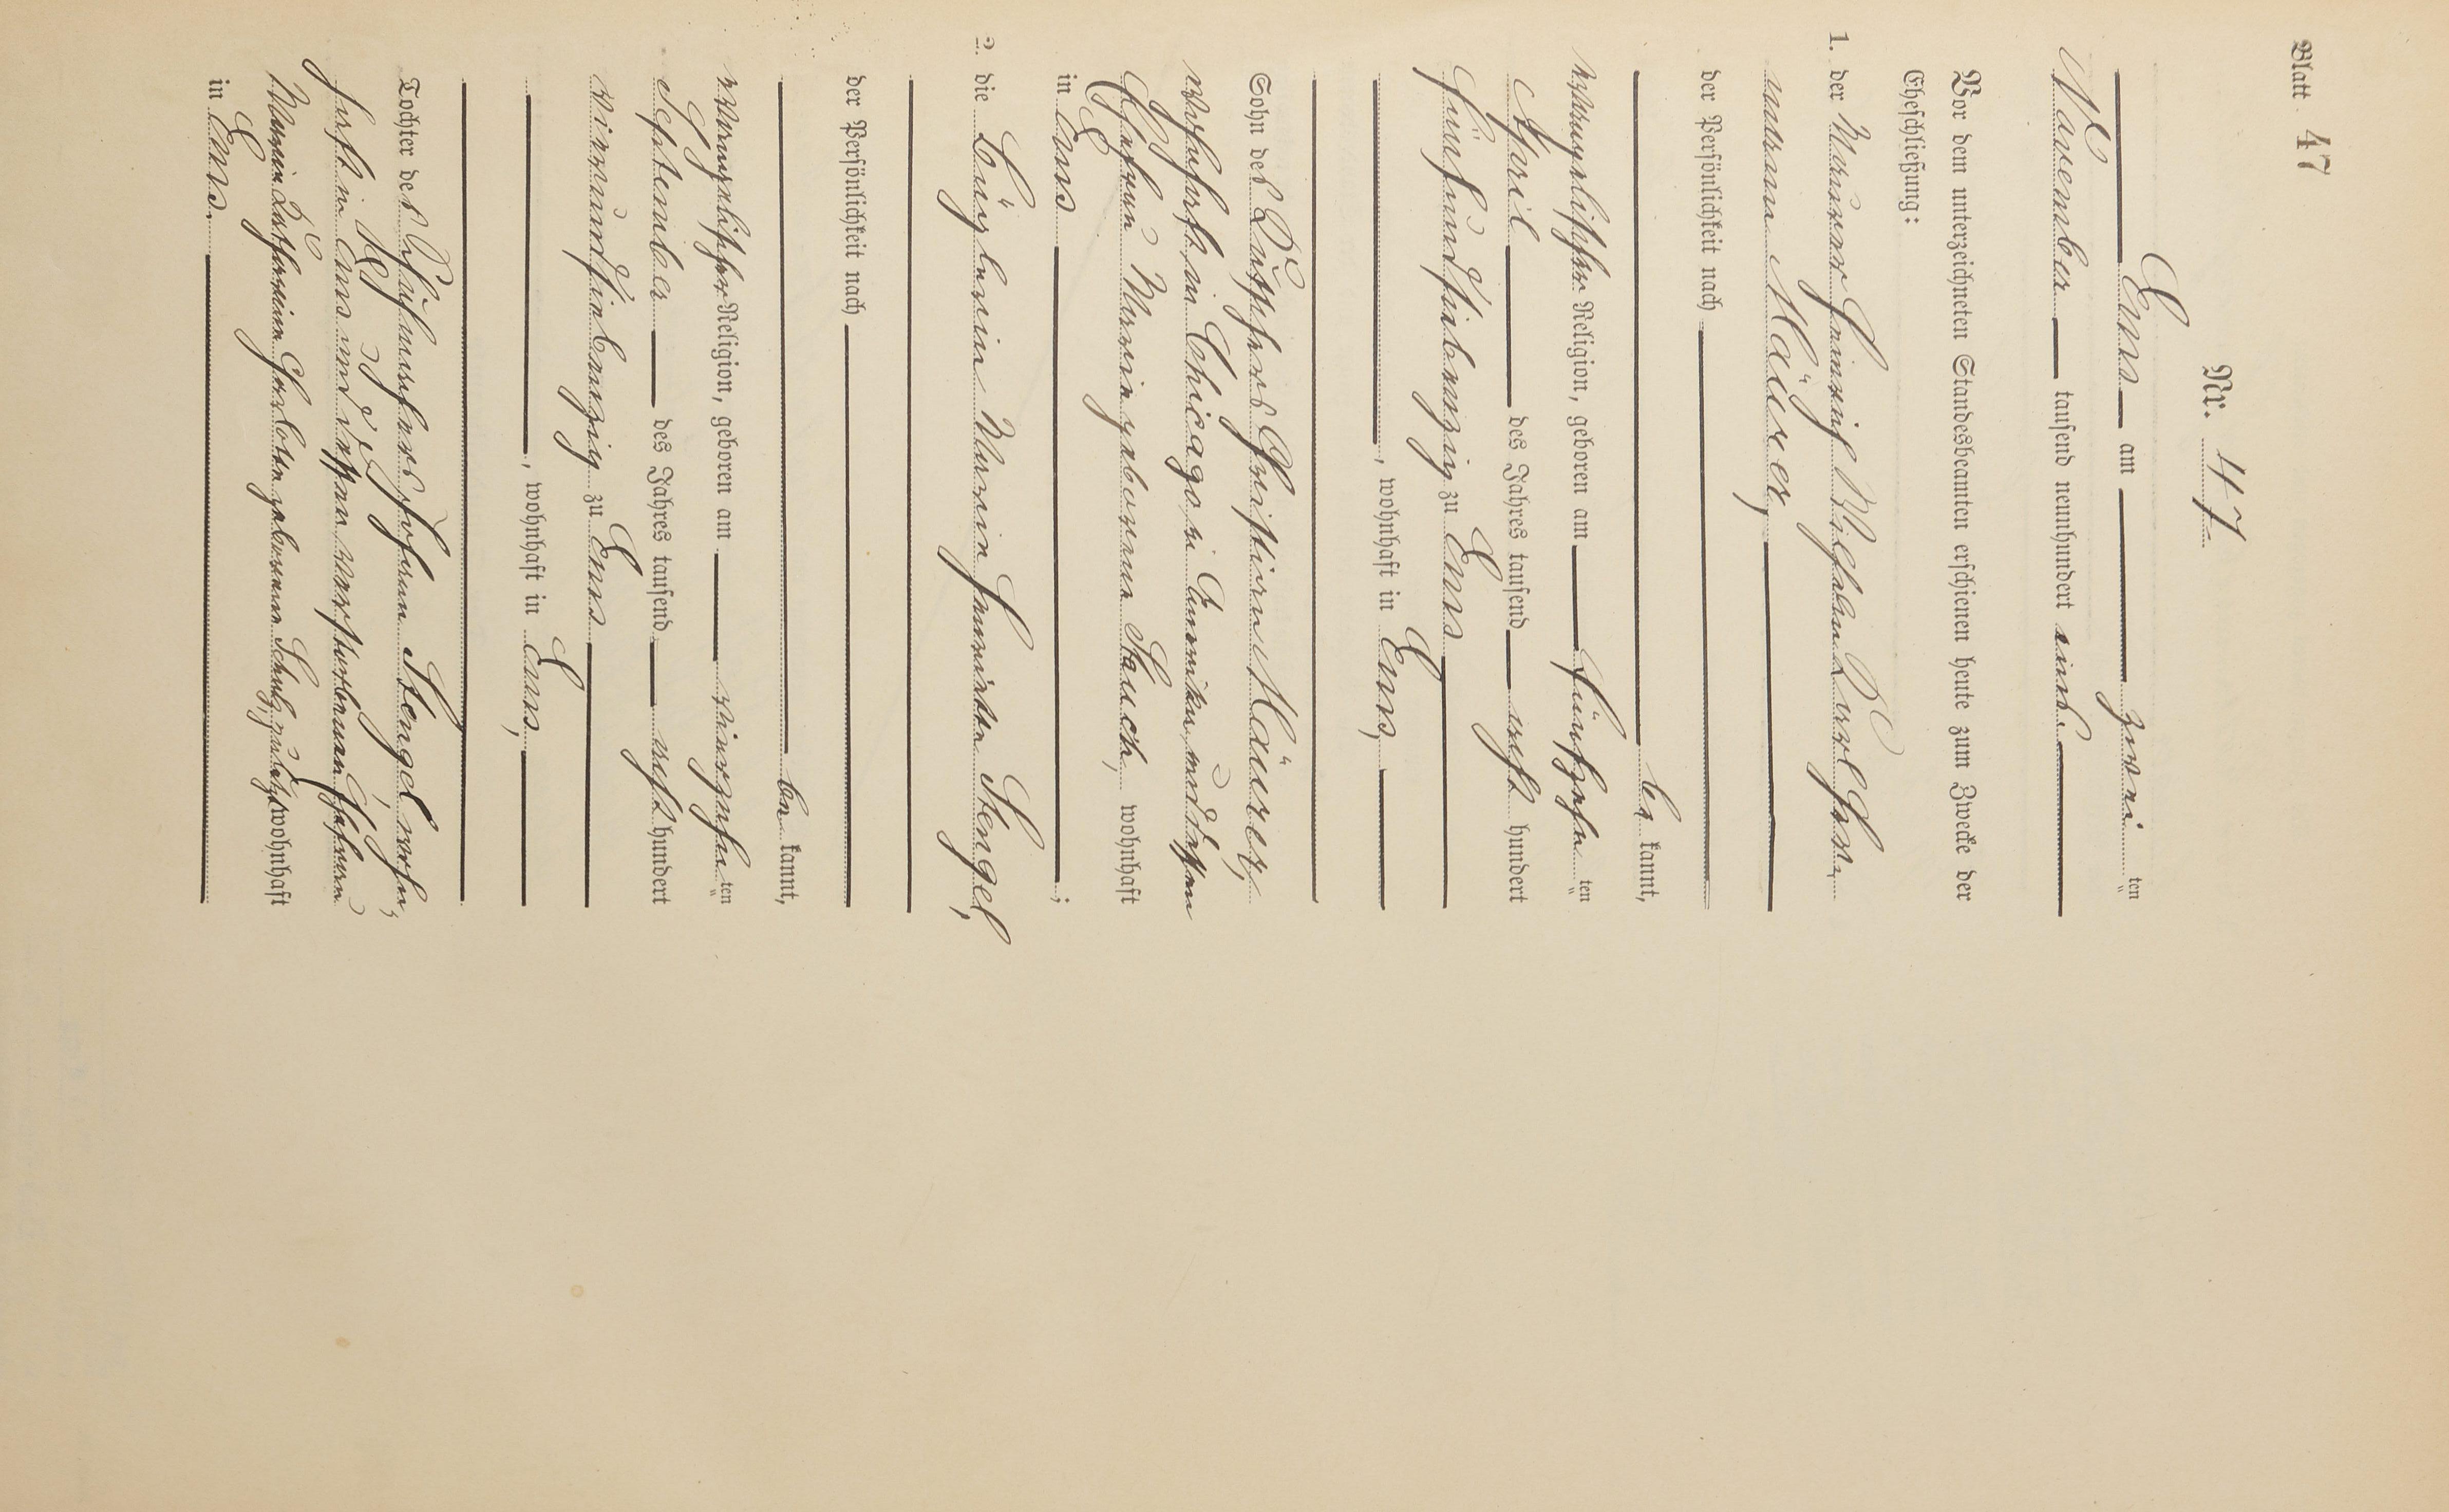 Blatt 47
Nr. 47.
Ems am zwei ten
November tausend neunhundert eins.
Vor dem unterzeichneten Standesbeamten erschienen heute zum Zwecke der
Eheschließung:
1. der Maurer Heinrich Wilhelm Karl Her-
mann Mäurer,
der Persönlichkeit nach
be kannt,
evangelischer Religion, geboren am fünfzehn ten
April des Jahres tausend acht hundert
fünfundsiebenzig zu Ems
, wohnhaft in Ems,
Sohn des Christian Mäurer,
wohnhaft in Chicago in Amerika, und dessen
Ehefrau Maria geborene Stauch, wohnhaft
in Ems ;
2. die Büglerin Maria Henriette Stengel,
der Persönlichkeit nach
be kannt,
evangelischer Religion, geboren am vierzehn ten
September des Jahres tausend acht hundert
vierundsiebenzig zu Ems
, wohnhaft in Ems,
Tochter des Johann Stengel, wohn-
haft in Ems und dessen verstorbenen Ehefrau
geborene Schulz, zuletzt wohnhaft
in Ems.